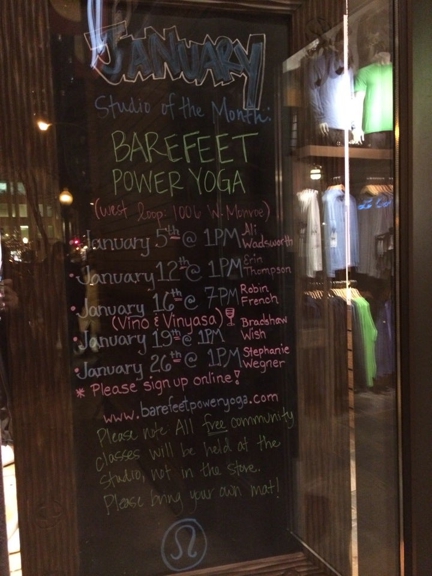 JANUARY
Studio of the Month:
BAREFEET
POWER YOGA
(West loop: 1006 W. Monroe)
January 5th @ 1PM Ali Wadsworth
January 12th @ 1PM Erin Thompson
January 16th @ 7PM Robin French
(Vino & Vinyasa)
January 19th @ 1PM Bradshaw Wish
January 26th @ 1PM Stephanie Wegner
* Please sign up online!
www.barefeetpoweryoga.com
Please note All free community
classes will be held at the
studio, not in the store.
Please bring your own mat!